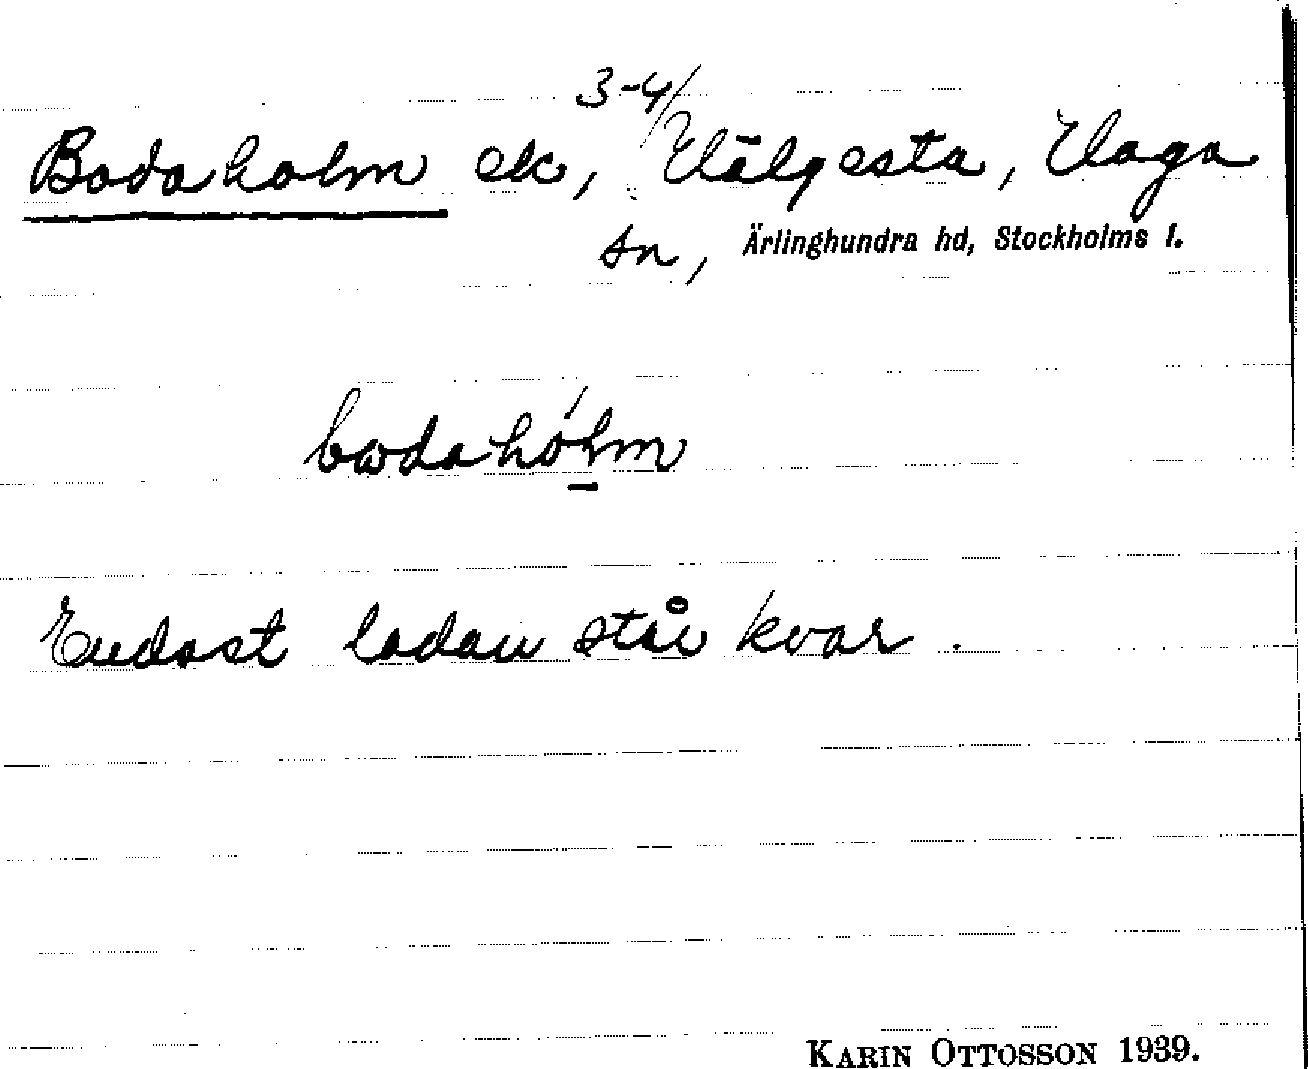 3-4/
Bodaholm ek, Hälgesta, Haga
sn, Ärlinghundra hd, Stockholms l.
bωdahólm
Endast ladan står kvar.
KARIN OTTOSSON 1939.